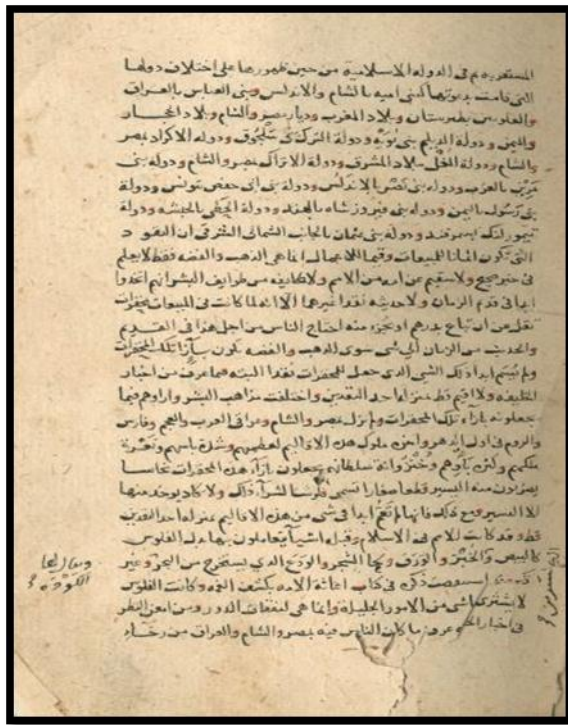 المستعربة ثم في الدولة الاسلامية من حين ظهورها على اختلاف دولها
التي قامت بدعوتها كبني امية بالشام والاندلس وبني العباس بالعراق
والعلويين بطبرستان وبلاد المغرب وديار مصر والشام وبلاد الحجاز
واليمن ودولة الديلم بني بويه ودولة الترك بني سلجوق ودولة الاكراد بمصر
والشام ودولة المغل ببلاد المشرق ودولة الاتراك بمصر والشام ودولة بني
مرين بالمغرب ودولة بني نصر بالاندلس ودولة بني ابي حفص بتونس ودولة
بني رسول باليمن ودولة بني فيروز شاه بالهند ودولة الحطي بالحبشة ودولة
تيمور لنك بسمرقند ودولة بني عثمان بالجانب الشمالي الشرقي ان النقود
التي تكون اثمانا للمبيعات وقيما للاعمال انما هي الذهب والفضة فقط لا يعلم
في خبر صحيح ولا سقيم عن امة من الامم ولا طايفة من طوايف البشر انهم اتخذوا
ابدا في قديم الزمان ولا حديثه نقدا غيرهما الا انه لما كانت في المبيعات محقرات
تقل عن ان تباع بدرهم او بجزء منه احتاج الناس من اجل هذا في القديم
والحديث من الزمان الى شي سوى الذهب والفضة يكون بازاء تلك المحقرات
ولم يسم ابدا ذلك الشي الذي جعل للمحقرات نقدا البتة فيما عرف من اخبار
الخليقة ولا اقيم قط بمنزلة احد النقدين واختلفت مذاهب البشر واراوهم فيما
يجعلونه بازاء تلك المحقرات ولم تزل بمصر والشام وعراقي العرب والعجم وفارس
والروم في اول الدهر واخره ملوك هذه الاقاليم لعظمهم وشدة باسهم ولعزة
ملكهم وكثرة شاوهم وخنزوانة سلطانهم يجعلون بازاء هذه المحقرات نحاسا
يضربون منه اليسير قطعا صغارا تسمى فلوسا لشراء ذلك ولا يكاد يوجد منها
الا اليسير ومع ذلك فانها لم تقم ابدا في شي من هذه الاقاليم بمنزلة احد النقدين
قط وقد كانت للامم في الاسلام وقبله اشيا يتعاملون بها بدل الفلوس
كالبيض والخبز والورق ولحا الشجر والودع الذي يستخرج من البحر
وغير ذلك وقد استوعبت ذكره في كتاب اغاثة الامة بكشف الغمة وكانت الفلوس
لا يشترى بها شي من الامور الجليلة وانما هي لنفقات الدور ومن امعن النظر
في اخبار عرف ما كان الناس فيه بمصر والشام والعراق من رخاء
ويقال لها
الكودة